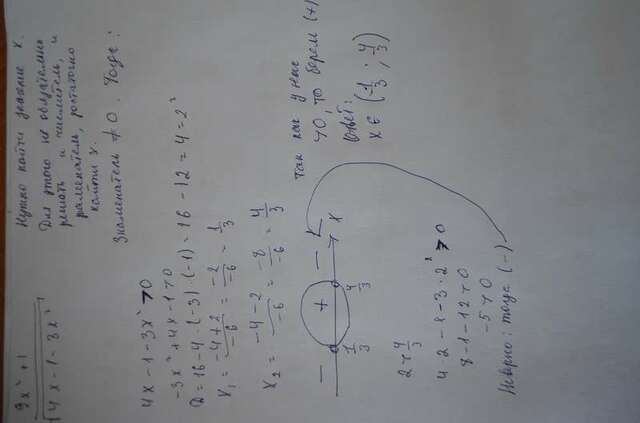 9x² + 1
√4x - 1 - 3x²
Нужно найти значение x.
Для этого не обязательно
решать и числитель, и
знаменатель, достаточно
найти x.
Знаменатель ≠ 0. Тогда:
4x - 1 - 3x² > 0
-3x² + 4x - 1 > 0
D = 16 - 4 · (-3) · (-1) = 16 - 12 = 4 = 2²
x₁ = -4 + 2 / -6 = -2 / -6 = 1/3
x₂ = -4 - 2 / -6 = -8 / -6 = 4/3
- + - x
1/3 4/3
2 > 4/3
4·2 - 1 - 3·2² > 0
8 - 1 - 12 > 0
-5 > 0
Неверно: тогда (-)
Так как у нас
> 0, то берем (+)
Ответ:
x ∈ (1/3 ; 4/3)